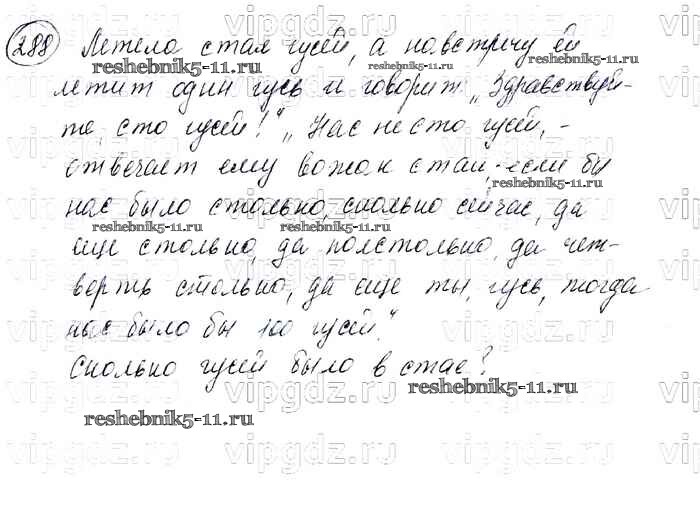 288 Летела стая гусей, а навстречу ей
летит один гусь и говорит: „Здравствуй-
те, сто гусей!" „Нас не сто гусей, -
отвечает ему вожак стаи, - если бы
нас было столько, сколько сейчас, да
еще столько, да полстолько, да чет-
верть столько, да еще ты, гусь, тогда
нас было бы 100 гусей."
Сколько гусей было в стае?
reshebnik5-11.ru
reshebnik5-11.ru
reshebnik5-11.ru
reshebnik5-11.ru
reshebnik5-11.ru
reshebnik5-11.ru
reshebnik5-11.ru
vipgdz.ru